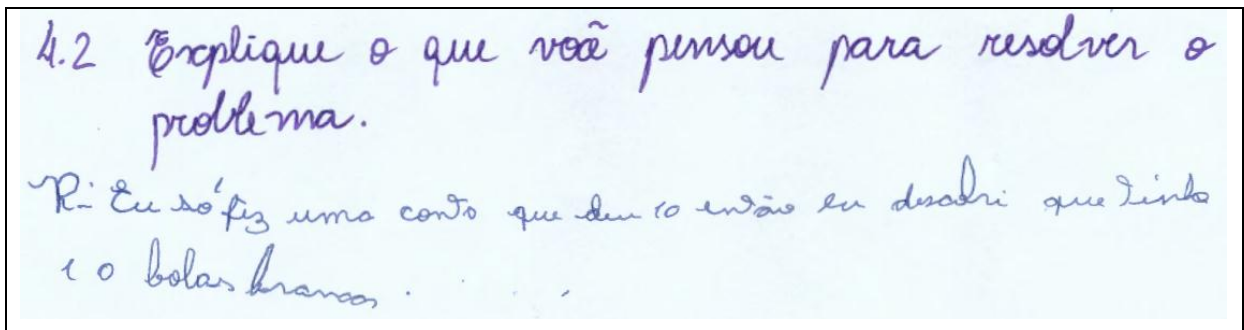 4.2 Explique o que você pensou para resolver o
problema.
R: Eu só fiz uma conta que deu 10 então eu descobri que tinha
10 bolas brancas.